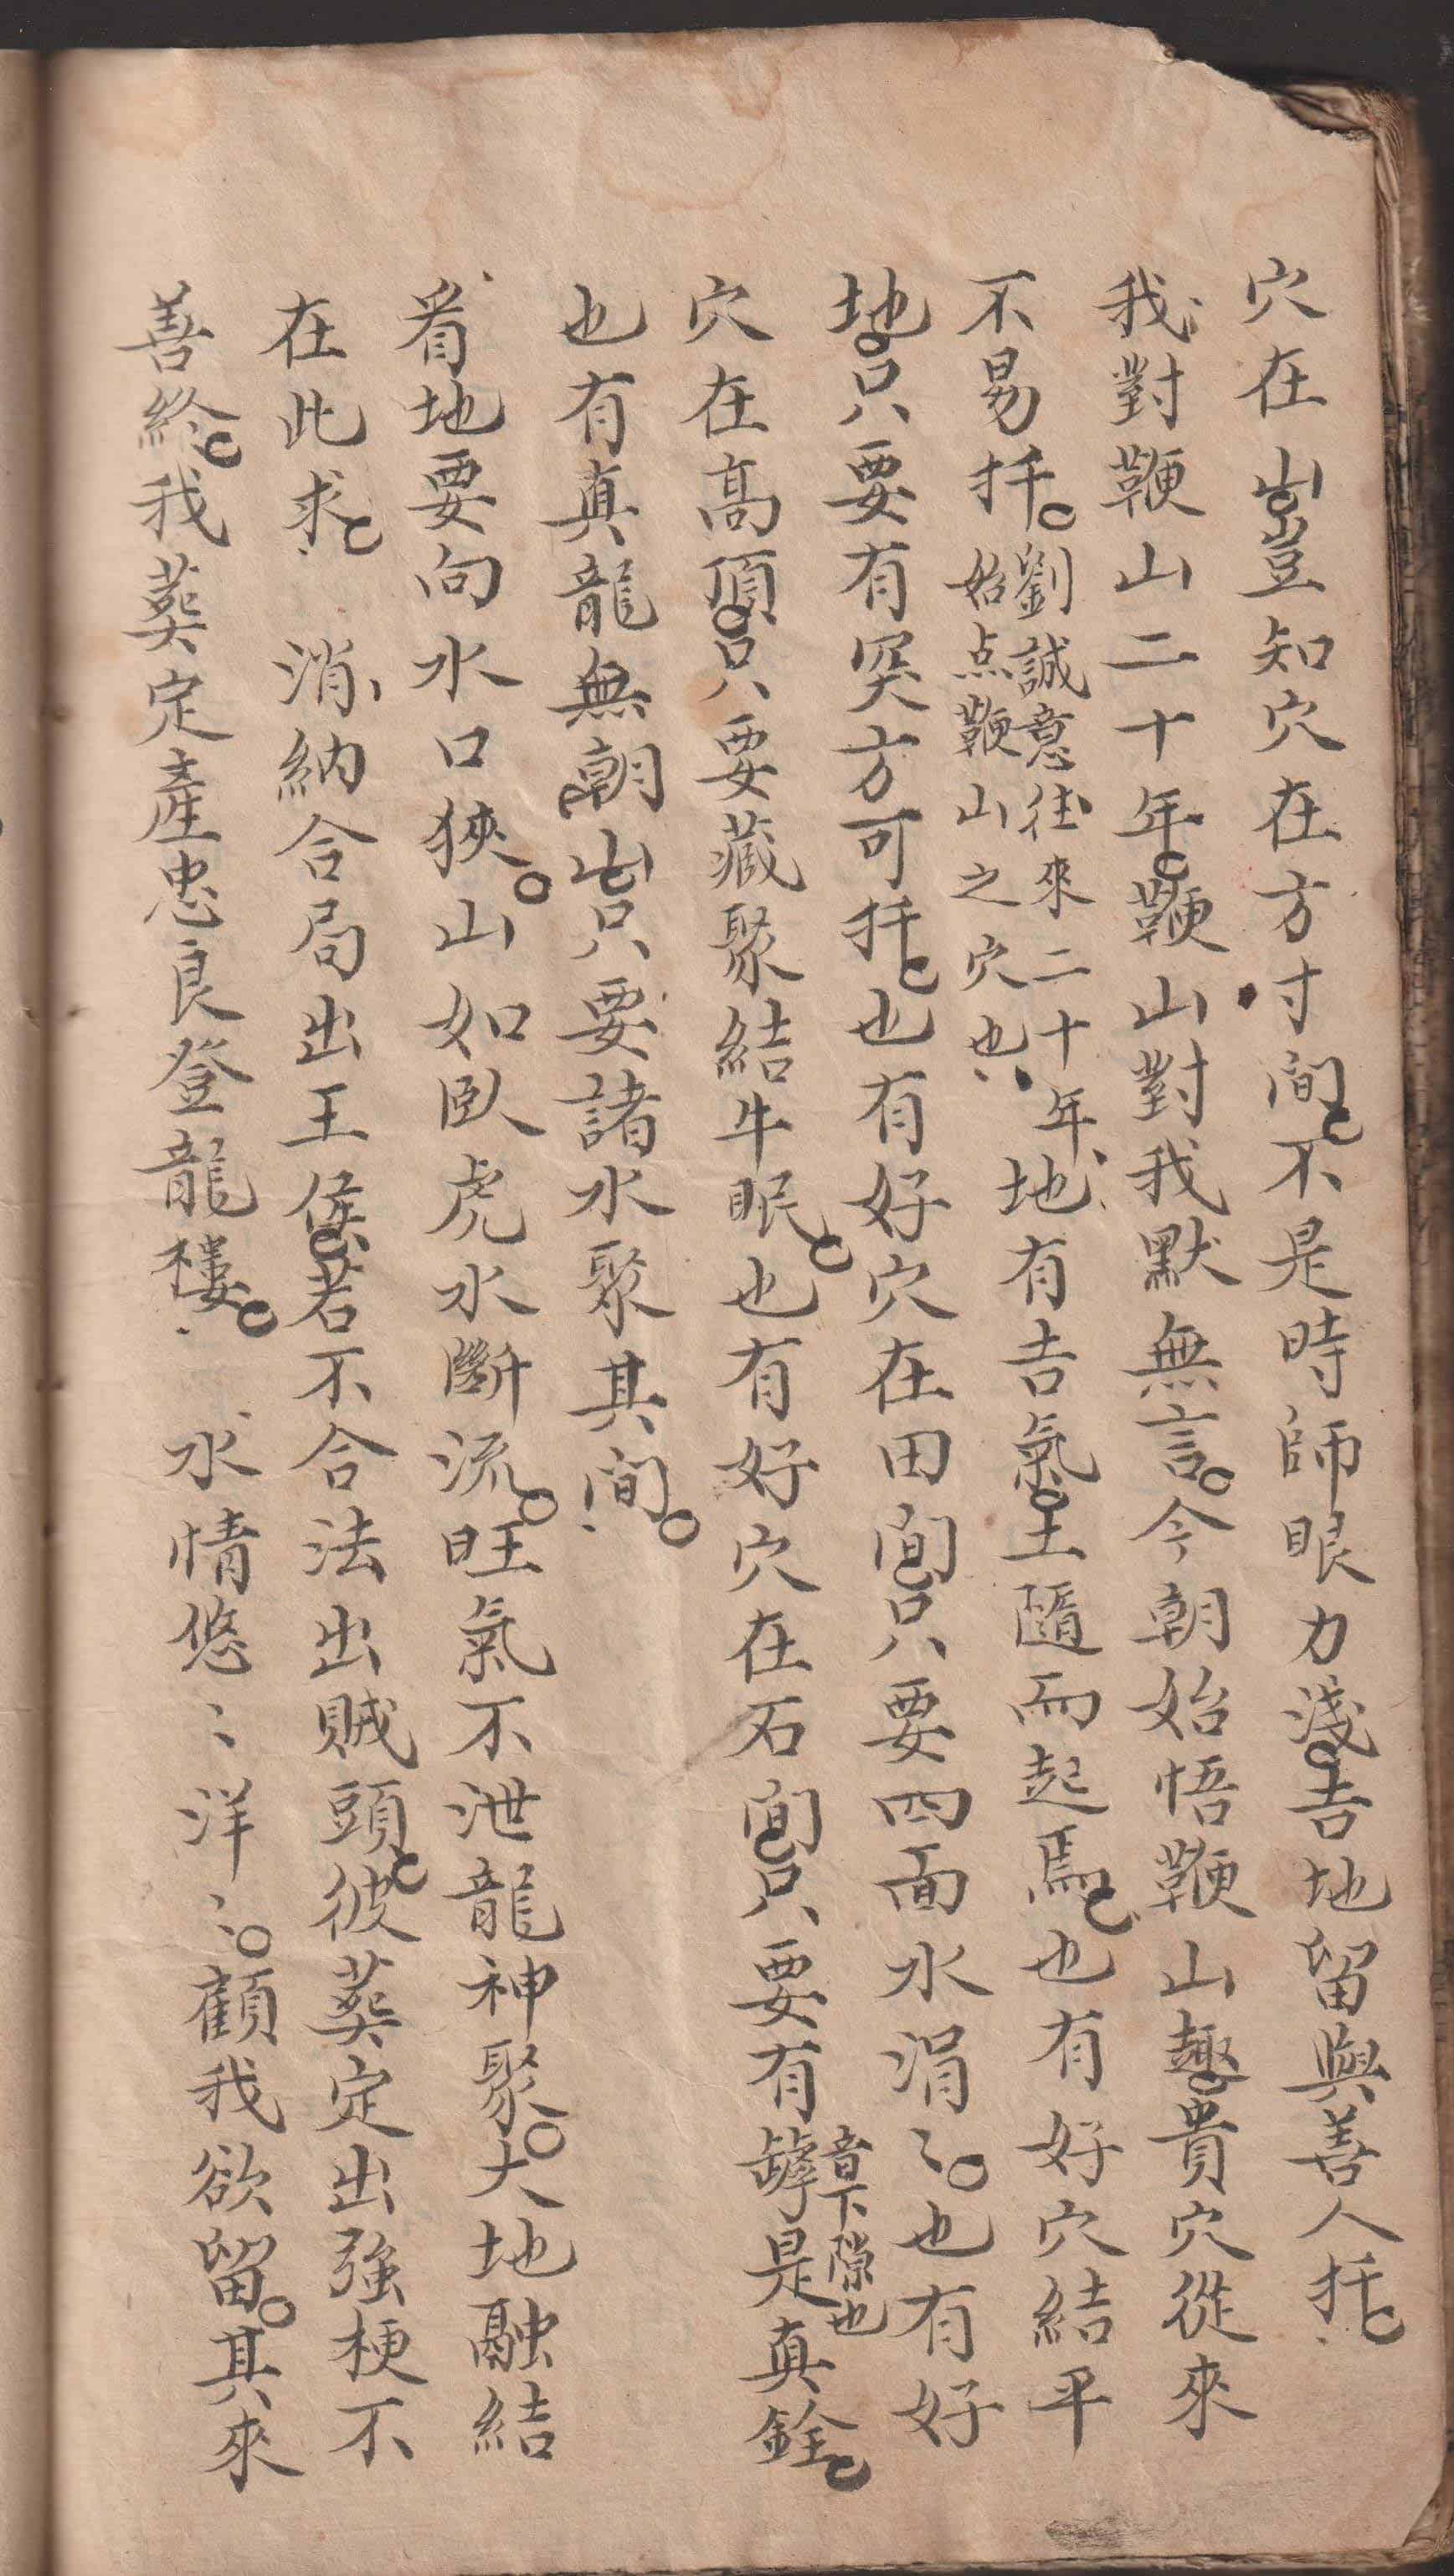 穴在山豈知穴在方寸间不是時師眼力淺吉地留與善人扦
我對鞭山二十年鞭山對我默無言今朝始悟鞭山趣貴穴從來
不易扦劉誠意往來二十年始点鞭山之穴也地有吉氣土隨而起焉也有好穴結平
地只要有突方可扦也有好穴在田间只要四面水涓〻也有好
穴在高頂只要藏聚結牛眠也有好穴在石间只要有罅音下隙也是真銓
也有真龍無朝山只要諸水聚其间
看地要向水口狹山如臥虎水斷流旺氣不泄龍神聚大地融結
在此求 消納合局出王侯若不合法出賊頭彼葬定出強梗不
善終我葬定產忠良登龍樓 水情悠〻洋〻顧我欲留其來